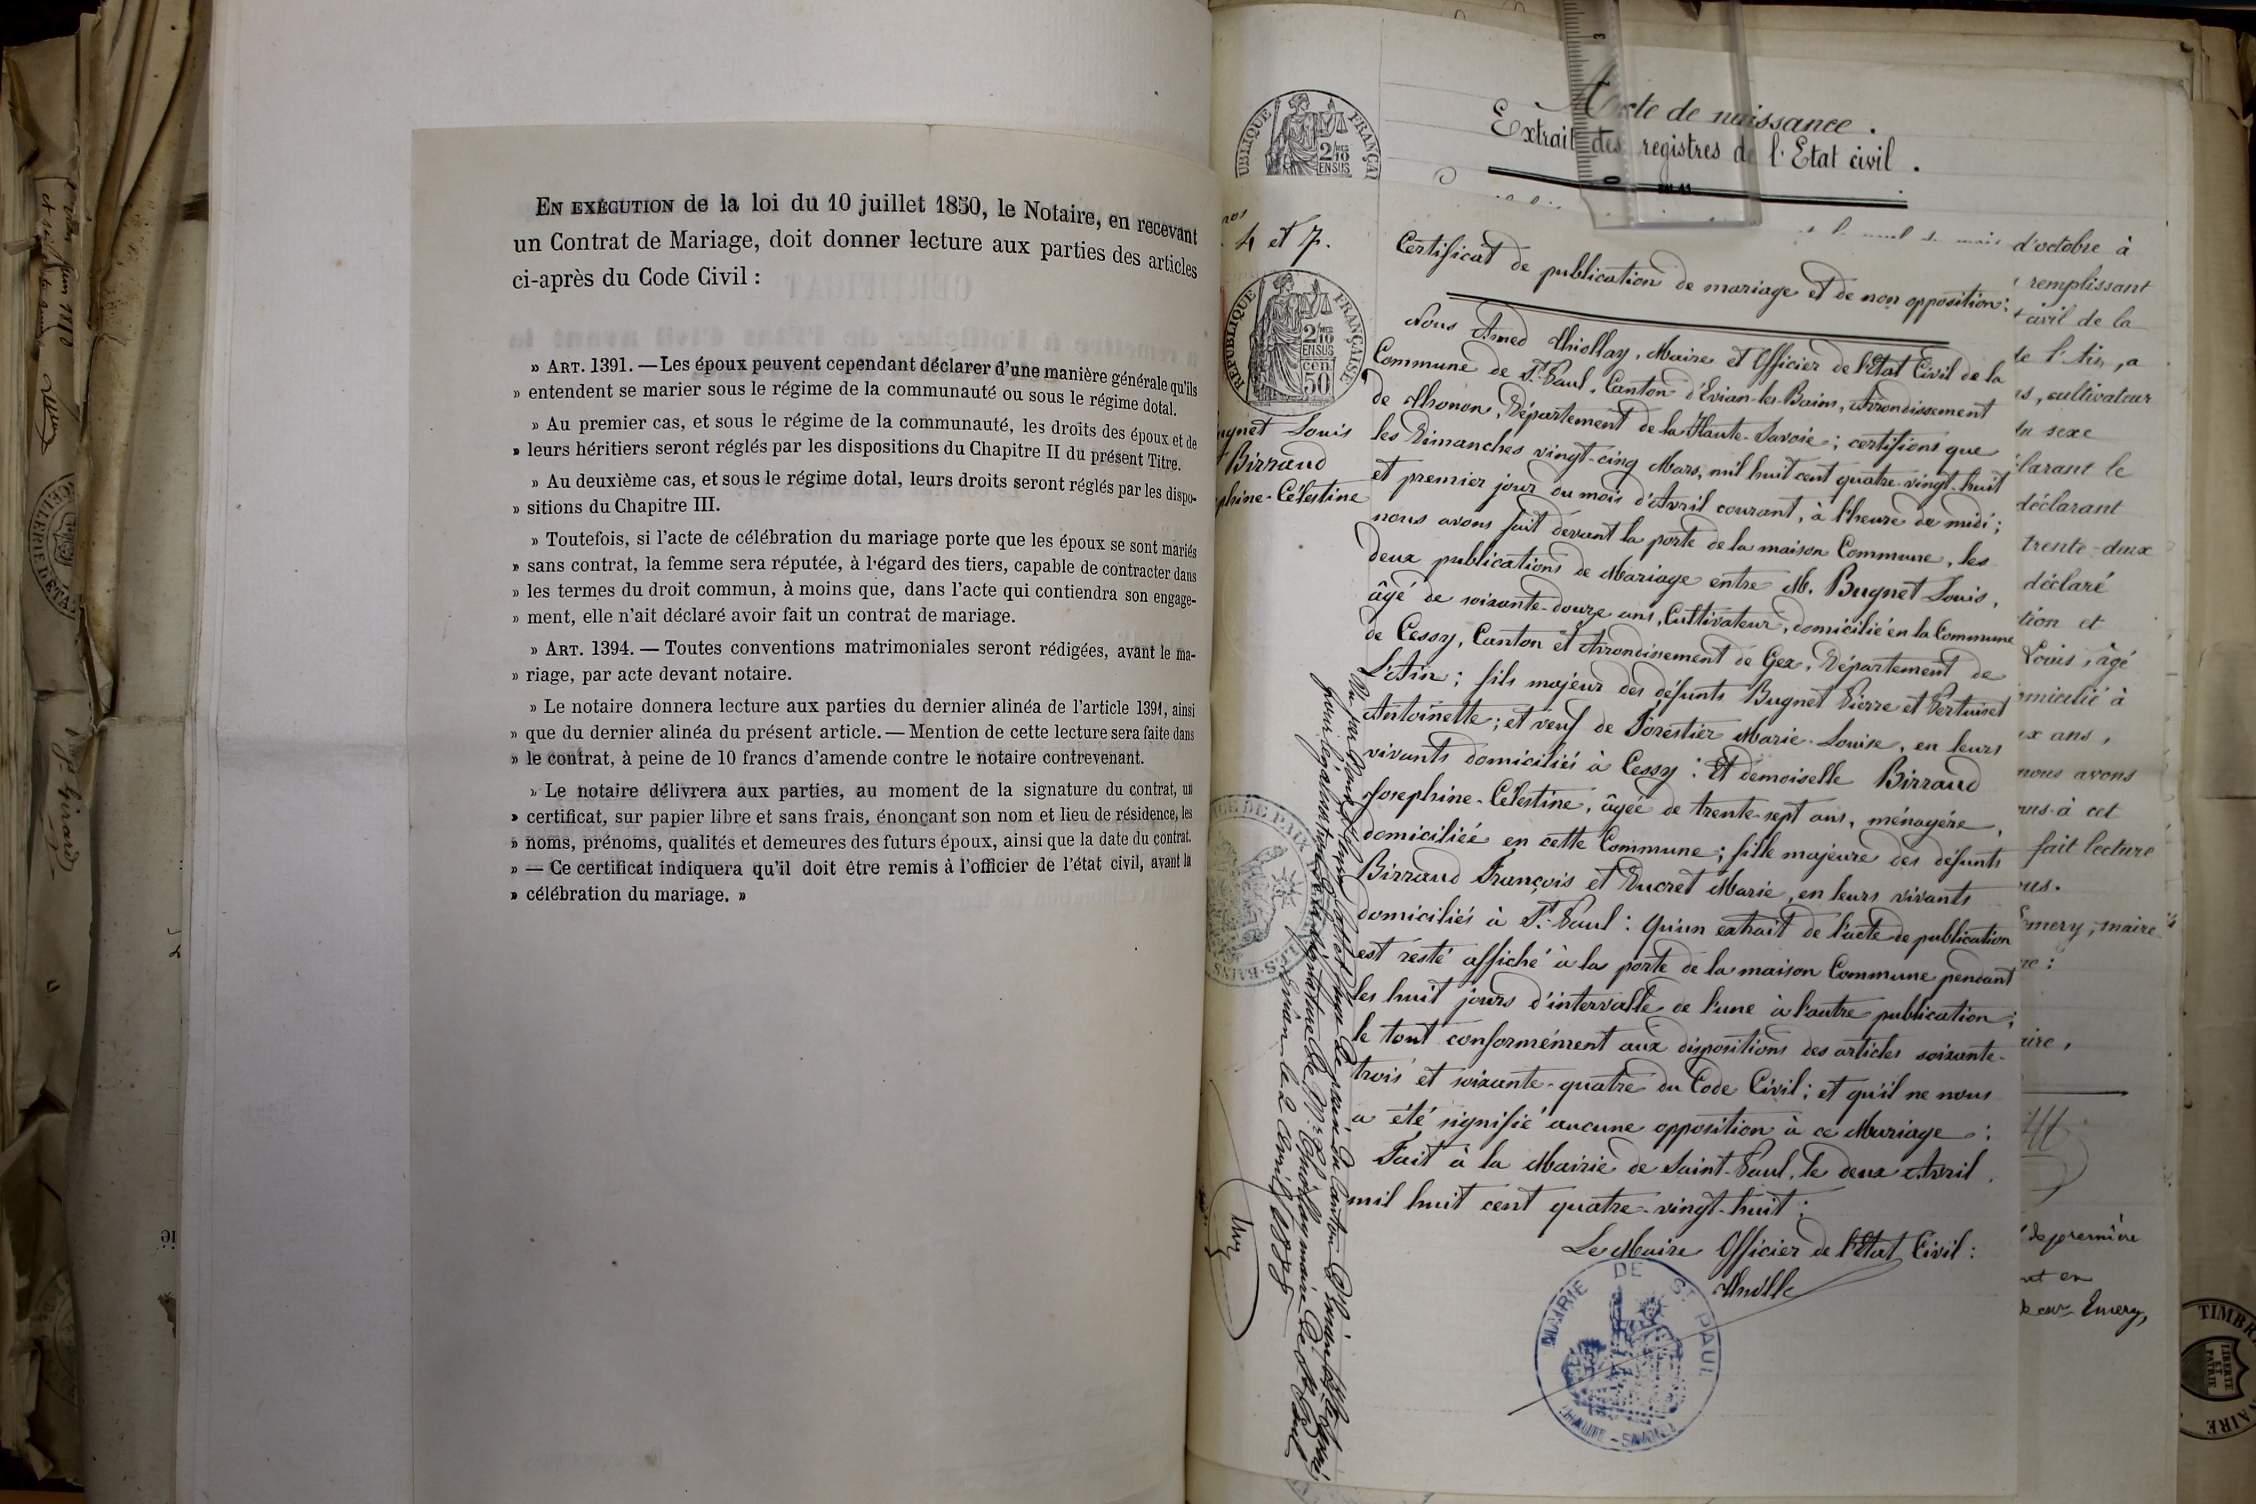 EN EXÉCUTION de la loi du 10 juillet 1850, le Notaire, en recevant
un Contrat de Mariage, doit donner lecture aux parties des articles
ci-après du Code Civil :
» ART. 1391. — Les époux peuvent cependant déclarer d'une manière générale qu'ils
» entendent se marier sous le régime de la communauté ou sous le régime dotal.
» Au premier cas, et sous le régime de la communauté, les droits des époux et de
» leurs héritiers seront réglés par les dispositions du Chapitre II du présent Titre.
» Au deuxième cas, et sous le régime dotal, leurs droits seront réglés par les dispo-
» sitions du Chapitre III.
» Toutefois, si l'acte de célébration du mariage porte que les époux se sont mariés
» sans contrat, la femme sera réputée, à l'égard des tiers, capable de contracter dans
» les termes du droit commun, à moins que, dans l'acte qui contiendra son engage-
» ment, elle n'ait déclaré avoir fait un contrat de mariage.
» ART. 1394. — Toutes conventions matrimoniales seront rédigées, avant le ma-
» riage, par acte devant notaire.
» Le notaire donnera lecture aux parties du dernier alinéa de l'article 1391, ainsi
» que du dernier alinéa du présent article. — Mention de cette lecture sera faite dans
» le contrat, à peine de 10 francs d'amende contre le notaire contrevenant.
» Le notaire délivrera aux parties, au moment de la signature du contrat, un
» certificat, sur papier libre et sans frais, énonçant son nom et lieu de résidence, les
» noms, prénoms, qualités et demeures des futurs époux, ainsi que la date du contrat.
» — Ce certificat indiquera qu'il doit être remis à l'officier de l'état civil, avant la
» célébration du mariage. »
Acte de naissance.
Extrait des registres de l'Etat civil.
4 et 7.
RÉPUBLIQUE FRANÇAISE
2/10 EN SUS
50 cen
Bugnet Louis
Birraud
phine-Célestine
Certificat de publication de mariage et de non opposition :
Nous Amed Thiollay, Maire et Officier de l'Etat Civil de la
Commune de St Paul, Canton d'Evian-les-Bains, Arrondissement
de Thonon, Département de la Haute-Savoie ; certifions que
les Dimanches vingt-cinq Mars, mil huit cent quatre-vingt-huit
et premier jour du mois d'Avril courant, à l'heure de midi ;
nous avons fait devant la porte de la maison Commune, les
deux publications de Mariage entre M. Bugnet Louis,
âgé de soixante-douze ans, Cultivateur, domicilié en la Commune
de Cessy, Canton et Arrondissement de Gex, Département de
L'Ain ; fils majeur des défunts Bugnet Pierre et Pertuiset
Antoinette ; et veuf de Forestier Marie-Louise, en leurs
vivants domiciliés à Cessy : Et demoiselle Birraud
Josephine-Célestine, âgée de trente-sept ans, ménagère,
domiciliée en cette Commune ; fille majeure des défunts
Birraud François et Ducret Marie, en leurs vivants
domiciliés à St Paul : qu'un extrait de l'acte de publication
est resté affiché à la porte de la maison Commune pendant
les huit jours d'intervalle de l'une à l'autre publication ;
le tout conformément aux dispositions des articles soixante-
trois et soixante-quatre du Code Civil ; et qu'il ne nous
a été signifié aucune opposition à ce Mariage :
Fait à la Mairie de Saint-Paul, le deux Avril
mil huit cent quatre-vingt-huit :
Le Maire Officier de l'Etat Civil :
MAIRIE DE ST PAUL
HAUTE-SAVOIE
Evian le 2 avril 1888
d'octobre à
remplissant
civil de la
de l'Ain, a
cultivateur
du sexe
déclarant
trente-deux
déclaré
Louis, âgé
ans,
nous avons
à cet
fait lecture
maire
première
Emery,
TIMBRE
LIBERTÉ ET PATRIE